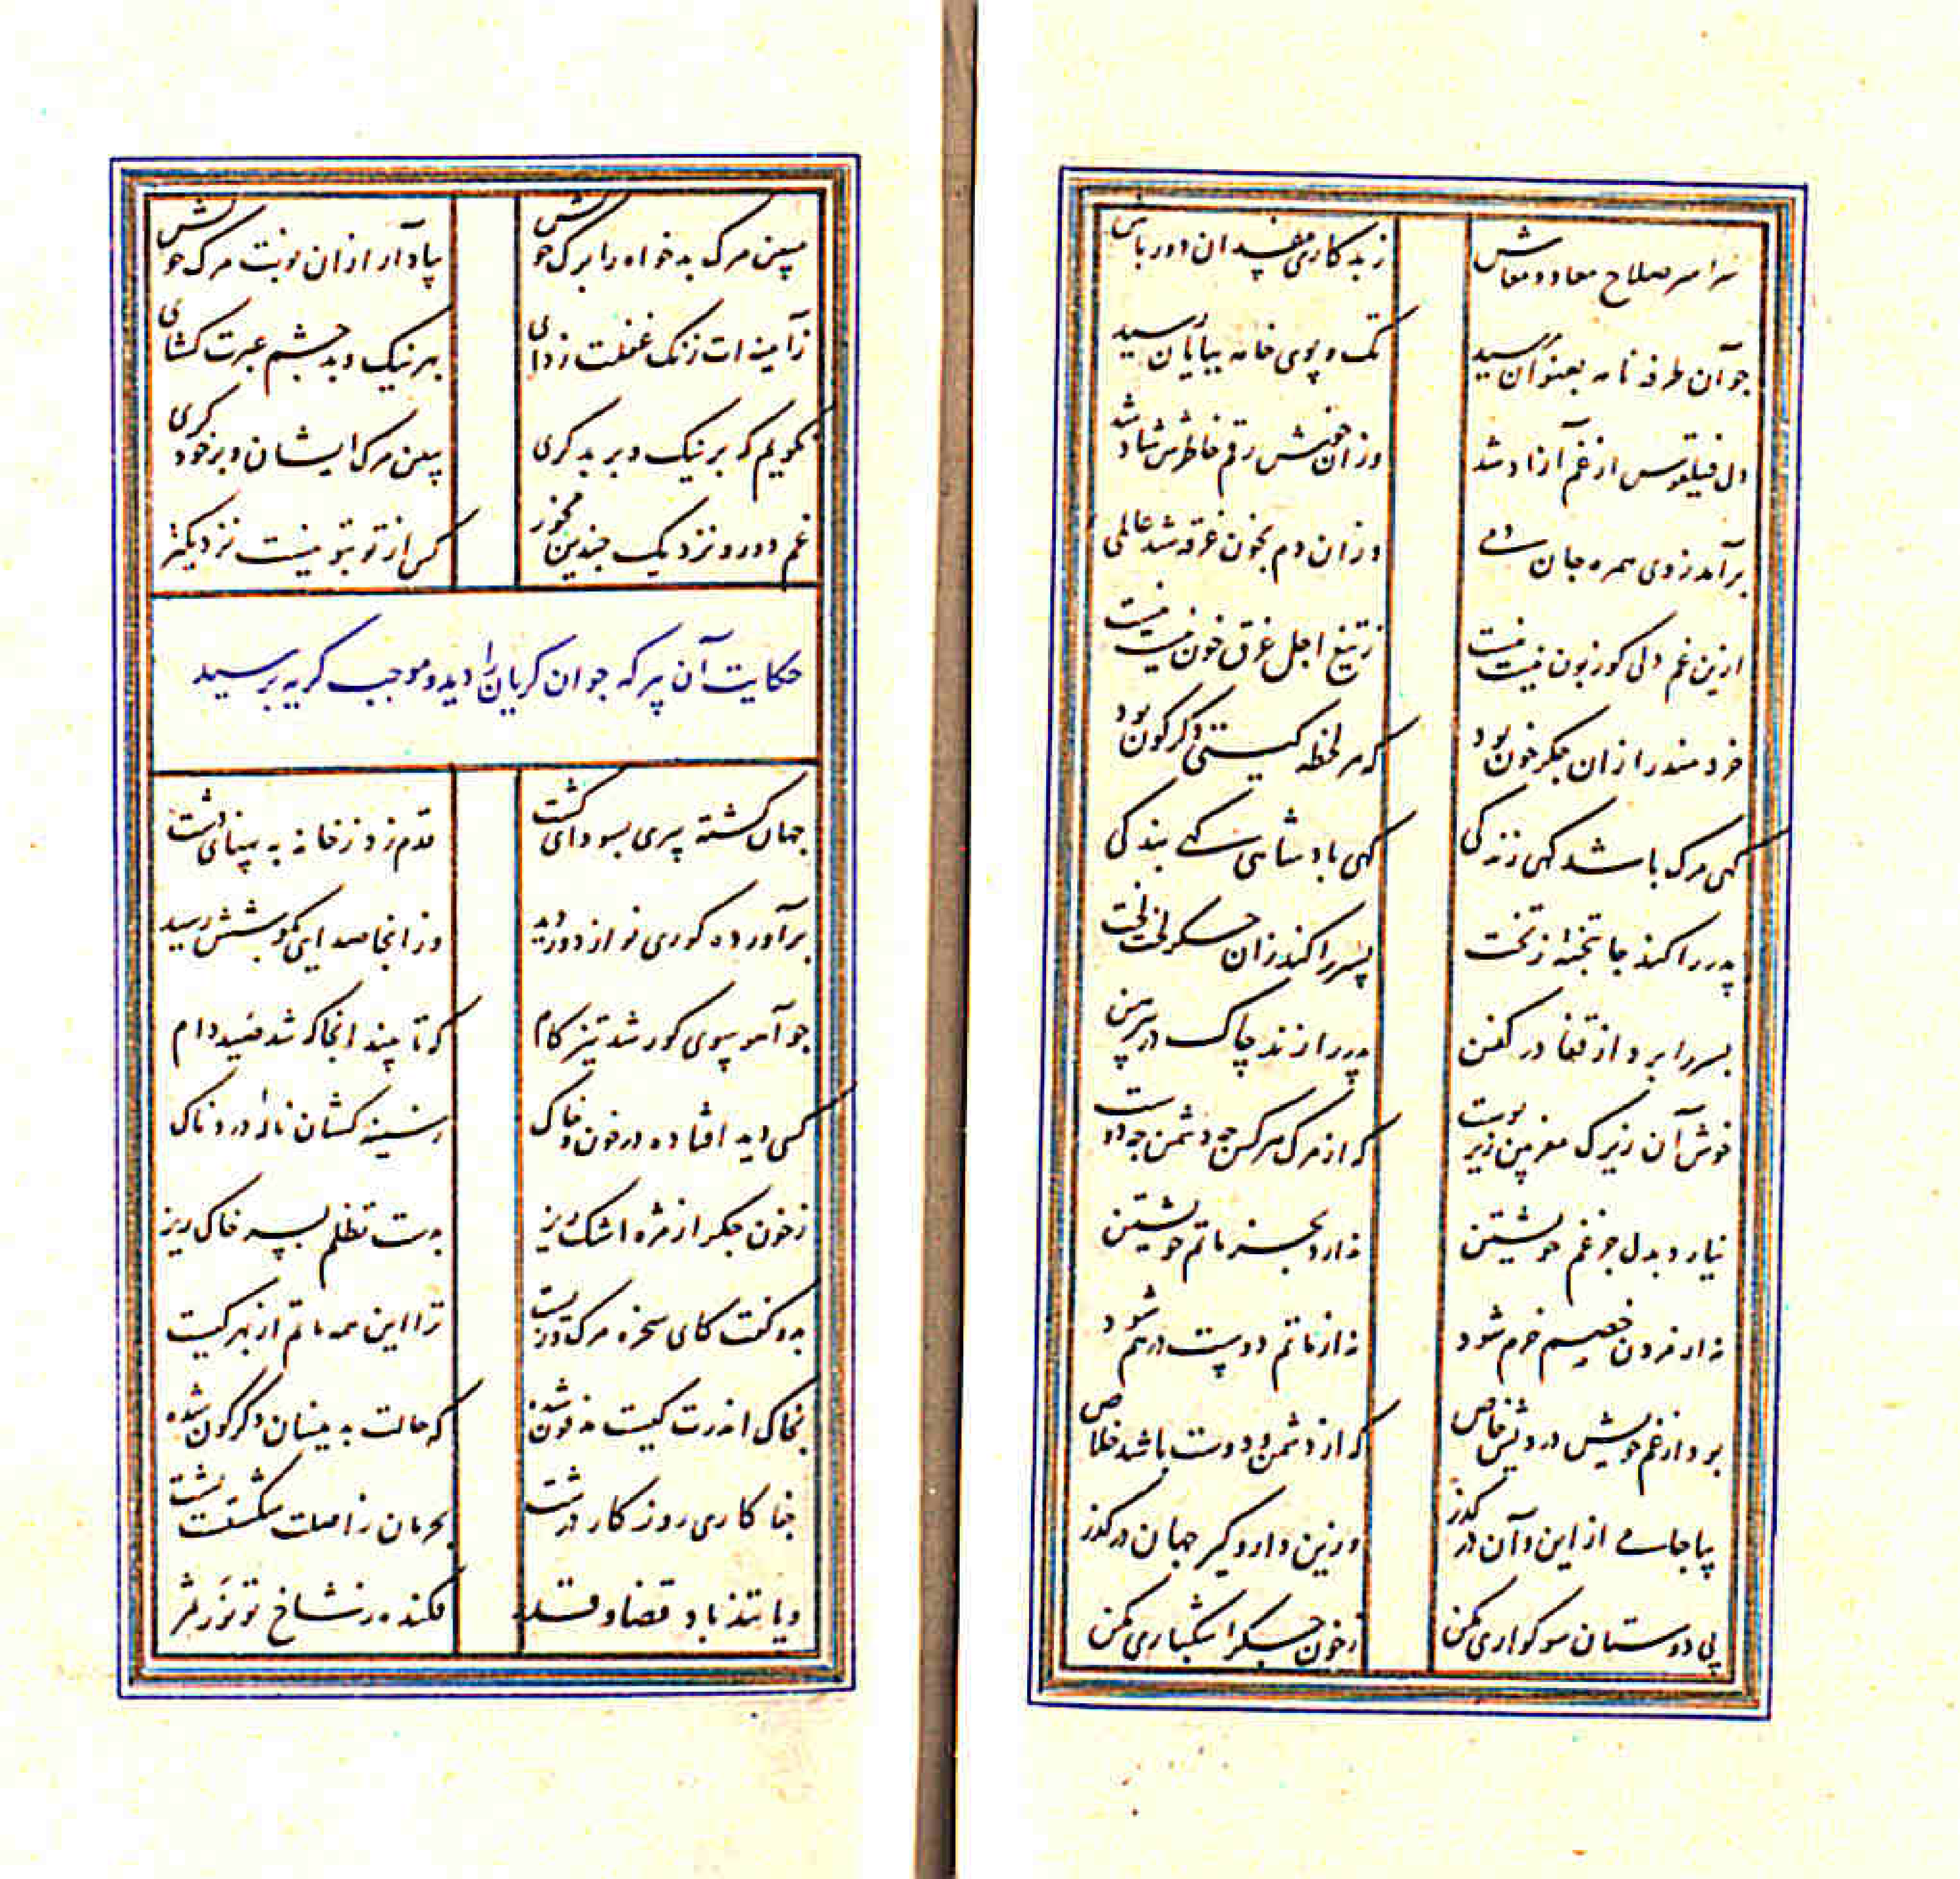 سراسر صلاح معاد و معاش ز بد کاری مفسدان دور باش
چو آن طرفه نامه بعنوان رسید تک و پوی خامه بپایان رسید
دل فیلقوس از غم آزاد شد وزان خوش رقم خاطرش شاد شد
برآمد ز وی همره جان دمی وزان دم بخون غرقه شد عالمی
ازین غم دلی کو زبون نیست نیست ز تیغ اجل غرق خون نیست نیست
خردمند را زان جگر خون بود که هر لحظه گیتی دگرگون بود
گهی مرگ باشد گهی زندگی گهی پادشاهی گهی بندگی
پدر را کند جا بتخته ز تخت پسر را کند زان جگر لخت لخت
پسر را برد از قفا در کفن پدر را زند چاک در پیرهن
خوش آن زیرک مغز بین زیر پوست که از مرگ هر کس چه دشمن چه دوست
نیارد بدل جز غم خویشتن ندارد بجز ماتم خویشتن
نه از مردن خصم خرم شود نه از ماتم دوست درهم شود
بود از غم خویش در دیش خاص که از دشمن و دوست باشد خلاص
بیا جامی از این و آن درگذر وزین دار و گیر جهان درگذر
پی دوستان سوگواری مکن ز خون جگر اشکباری مکن
مبین مرگ بدخواه را برگ خویش بیاد آر ازان نوبت مرگ خویش
ز آیینه‌ات زنگ غفلت زدای بهر نیک و بد چشم عبرت گشای
نگویم که بر نیک و بر بد گری ببین مرگ ایشان و بر خود گری
غم دور و نزدیک چندین مخور کس از تو بتو نیست نزدیکتر
حکایت آن پیر که جوان گریان را دید و موجب گریه پرسید
جهان گشته پیری بسودای گشت قدم زد ز خانه به پهنای دشت
برآورده گوری نو از دور دید وز انجا صدایی بگوشش رسید
چو آهو بسوی گور شد تیز گام که تا بیند انجا که شد صید دام
کسی دید افتاده در خون و خاک ز سینه کشان ناله دردناک
ز خون جگر از مژه اشک ریز بدست تظلم بسر خاک ریز
بدو گفت کای سخره مرگ و زیست ترا این همه ماتم از بهر کیست
بخاک اندرت کیست مدفون شده که حالت بدینسان دگرگون شده
جفا کاری روزگار درشت بحرمان ز اصلت شکستست پشت
و یا تندباد قضا و قدر فکنده ز شاخ تو نورس ثمر